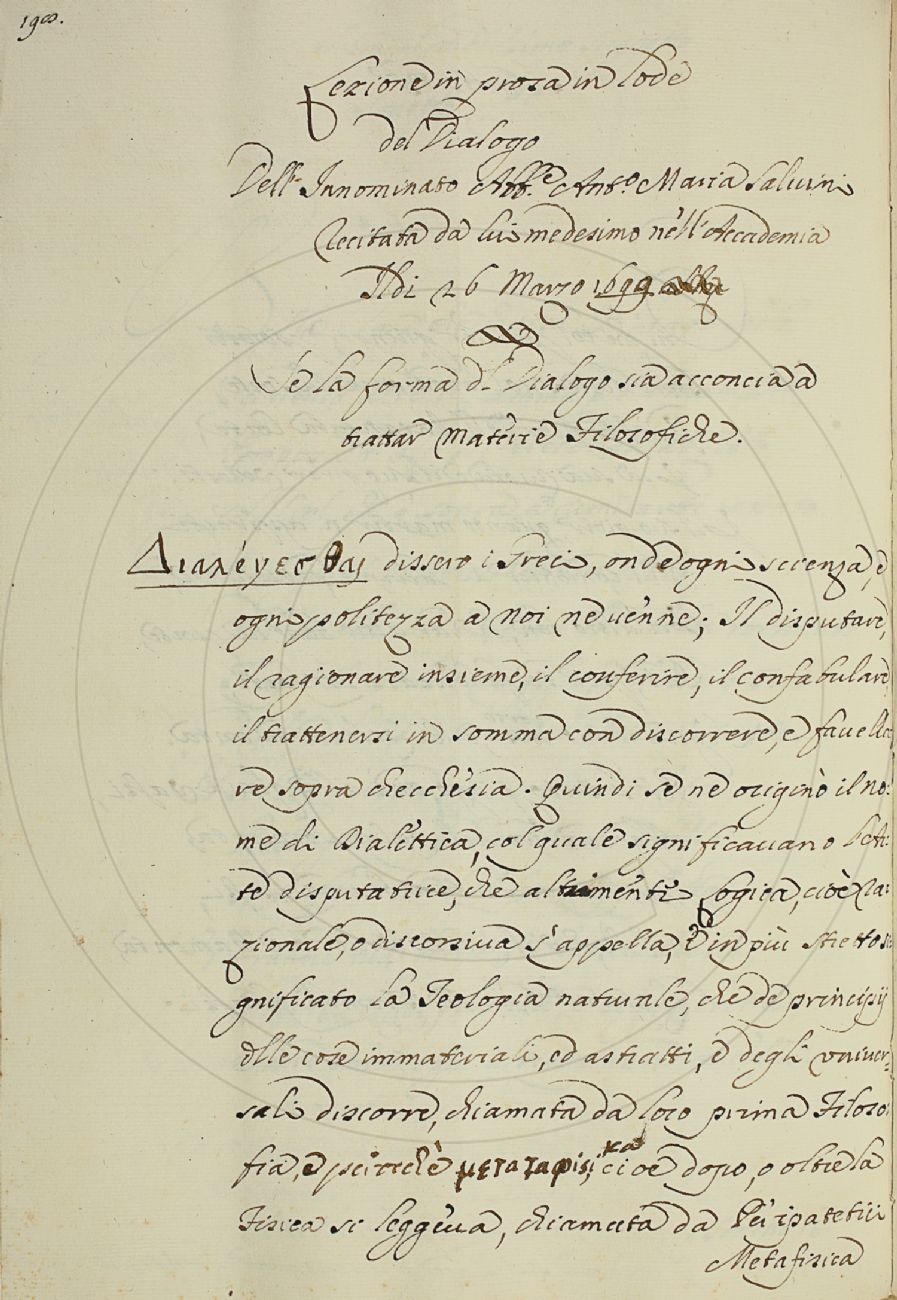 198.
Lezione in prosa in lode
del Dialogo
Dell'Innominato Abb.e Ant.o Maria Salvini
Recitata da lui medesimo nell'Accademia
Il dì 26 Marzo 1699
Se la forma d.l Dialogo sia acconcia a
trattar materie Filosofiche.
Διαλέγεσθαι dissero i Greci, onde ogni scienza, e
ogni politezza a noi ne venne; Il disputare,
il ragionare insieme, il conferire, il confabulare
il trattenersi in somma con discorrere, e favella
re sopra checchèsia. Quindi se ne originò il no:
me di Dialettica, col quale significavano l'Ar:
te disputatrice, che altrimenti Logica, cioè ra:
zionale, o discorsiva s'appella, e in più stretto si
gnificato la Teologia naturale, che de principij
dlle cose immateriali, ed astratti, e degli univer=
sali discorre, chiamata da loro prima Filoso
fia, e perciocchè μετα τα φισικα cioè dopo, o oltre la
Fisica si leggeva, chiamata da Peripatetici
Metafisica